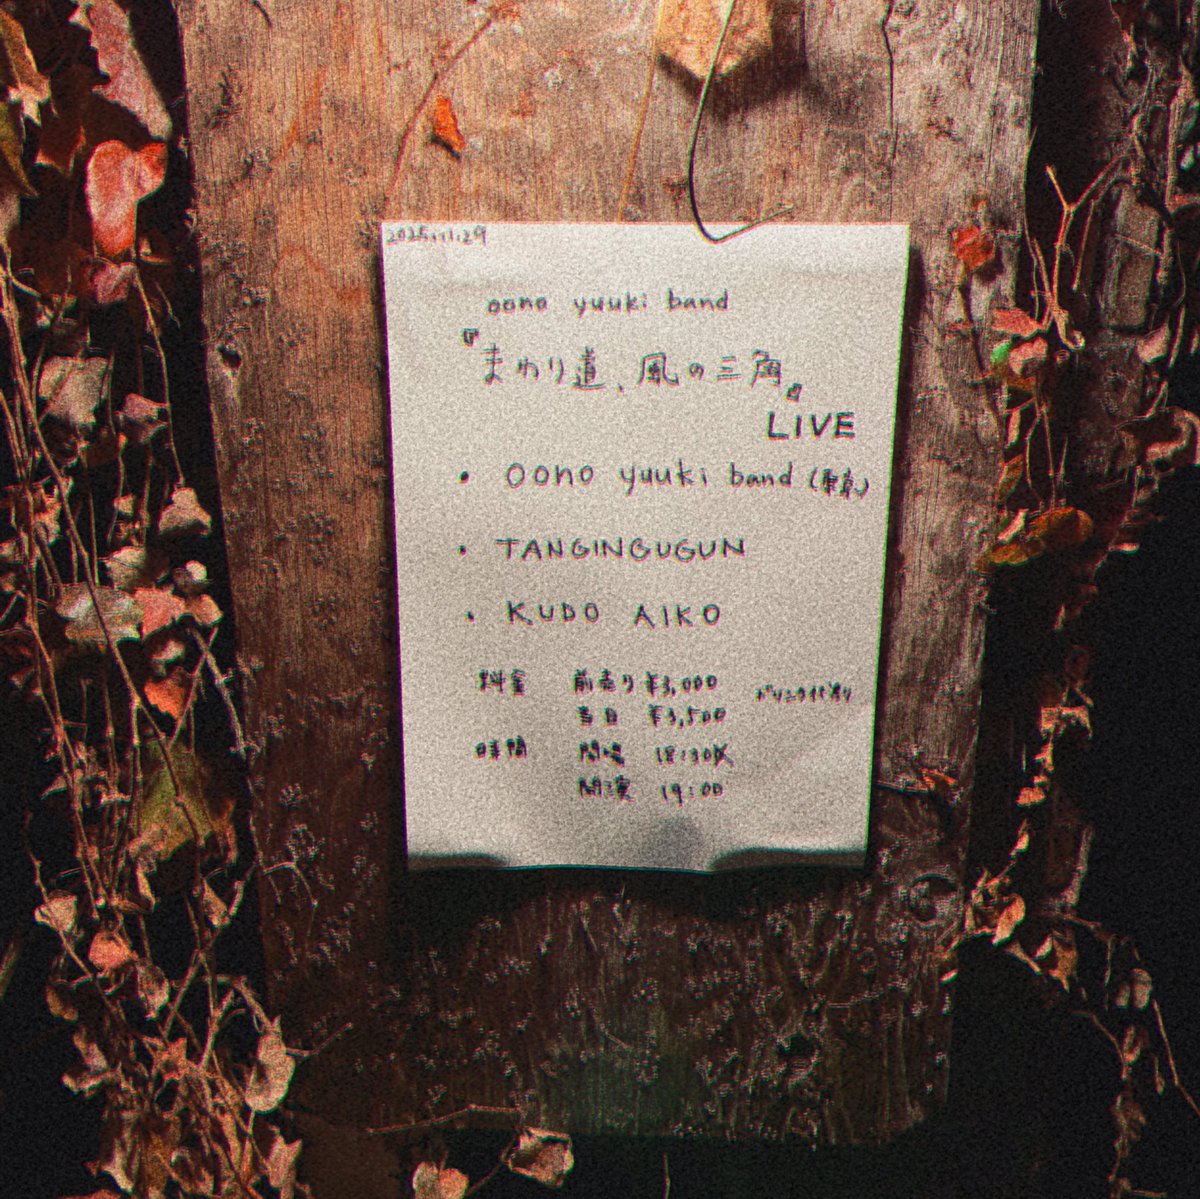 2025.11.29
oono yuuki band
『まわり道、風の三角』
LIVE
・ oono yuuki band (東京)
・ TANGINGUGUN
・ KUDO AIKO
料金 前売り ¥3,000 ドリンク代別り
当日 ¥3,500
時間 開場 18:30
開演 19:00